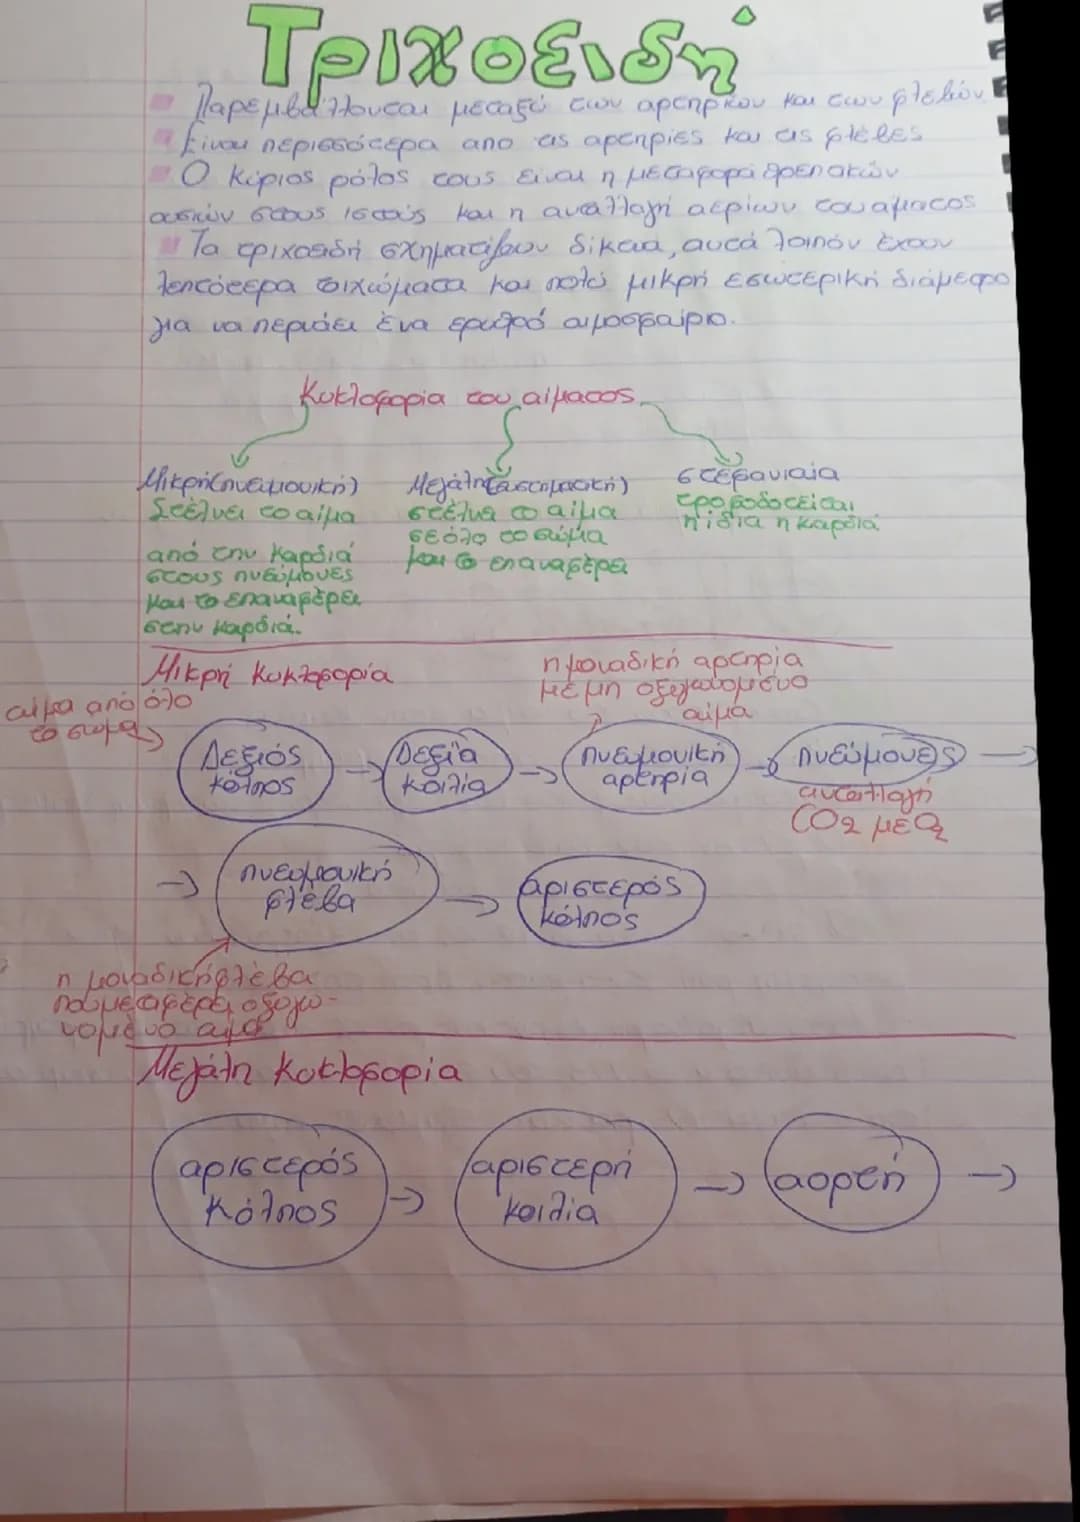 Τριχοειδή
Παρεμβάλλονται μεταξύ των αρτηριών και των φλεβών
Είναι περισσότερα από τις αρτηρίες και τις φλέβες
Ο κύριος ρόλος τους είναι η μεταφορά θρεπτικών
ουσιών στους ιστούς και η ανταλλαγή αερίων του αίματος
Τα τριχοειδή σχηματίζουν δίκτυα, αυτά λοιπόν έχουν
λεπτότερα τοιχώματα και πολύ μικρή εσωτερική διάμετρο
για να περνάει ένα ερυθρό αιμοσφαίριο.
Κυκλοφορία του αίματος
Μικρή (πνευμονική)
Στέλνει το αίμα
από την καρδιά
στους πνεύμονες
και το επαναφέρει
στην καρδιά.
Μεγάλη
στέλνει το αίμα
σε όλο το σώμα
και το επαναφέρει
στεφανιαία
τροφοδοτείται
η ίδια η καρδιά
Μικρή Κυκλοφορία
αίμα από όλο
το σώμα
Δεξιός
κόλπος
→
Δεξιά
κοιλία
→
η μοναδική αρτηρία
με μη οξυγονωμένο
αίμα
πνευμονική
αρτηρία
→
πνεύμονες
→
ανταλλαγή
CO2 με O2
→
πνευμονική
φλέβα
→
αριστερός
κόλπος
η μοναδική φλέβα
που μεταφέρει οξυγω-
νομένο αίμα
Μεγάλη Κυκλοφορία
αριστερός
κόλπος
→
αριστερή
κοιλία
→
αορτή
→